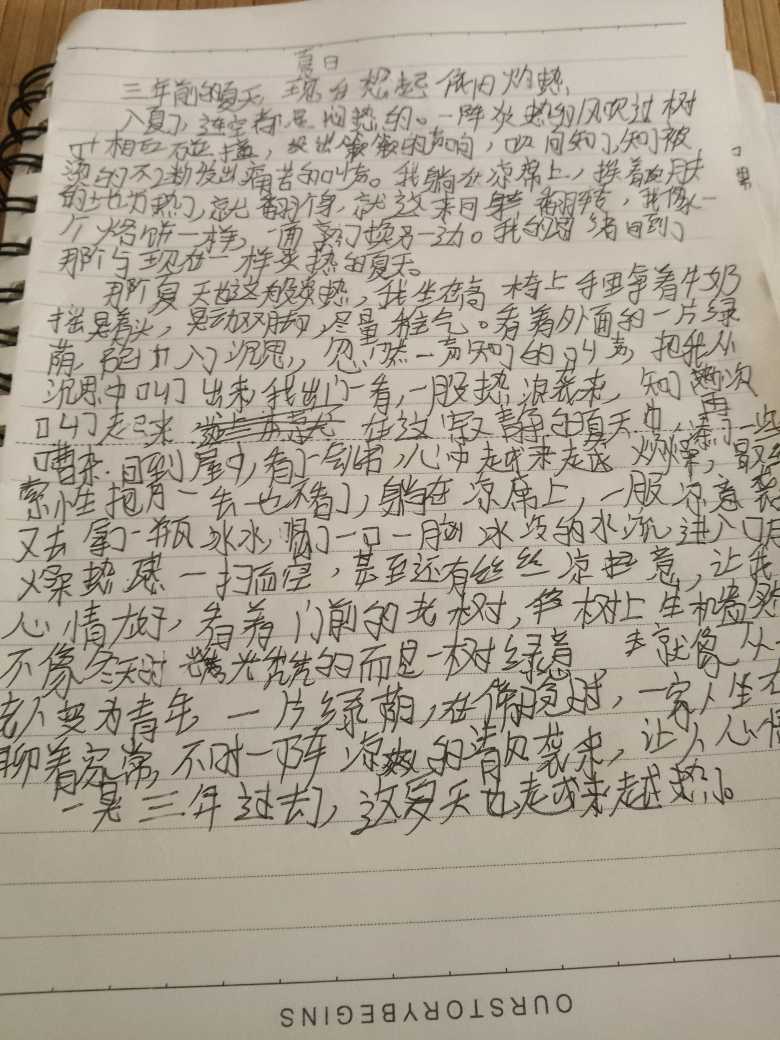 夏日
三年前的夏天,现在想起依旧灼热,
入夏了,连空都是闷热的。一阵炎热的风吹过树
叶相互碰撞,发出簌簌的声响,时间知了知了被
烫的不断发出痛苦的叫声。我躺在凉席上,挨着皮肤
的地方热了,就翻个身,就这来回翻转,我像一
个烙饼一样,一面熟了换另一边。我的思绪回到了
那个与现在一样炎热的夏天。
那个夏天也这般炎热,我坐在高椅上手里拿着牛奶
摇晃着头,晃动双脚,尽量稚气。看着外面的一片绿
荫,陷入了沉思,忽然一声知了的叫声,把我从
沉思中叫了出来,我出门一看,一股热浪袭来,知了再次
叫了起来,在这寂静的夏天中,添了一些
嘈杂.回到屋中,看了一会书,心中越来越烦燥,最
索性把月一丢也不看了,躺在凉席上,一股凉意袭
又去拿了一瓶冰水,喝了一口一股冰凉的水流进入口
燥热感一扫而空,甚至还有丝丝凉意,让我
心情大好,看着门前的老树,树上生机盎然
不像冬天时光秃秃的而是一树绿意,就像从一
老人变为青年,一片绿荫,在傍晚时,一家人坐在
聊着家常,不时一阵凉爽的清风袭来,让人心情
一晃三年过去了,这夏天也越来越热了。
OURSTORYBEGINS